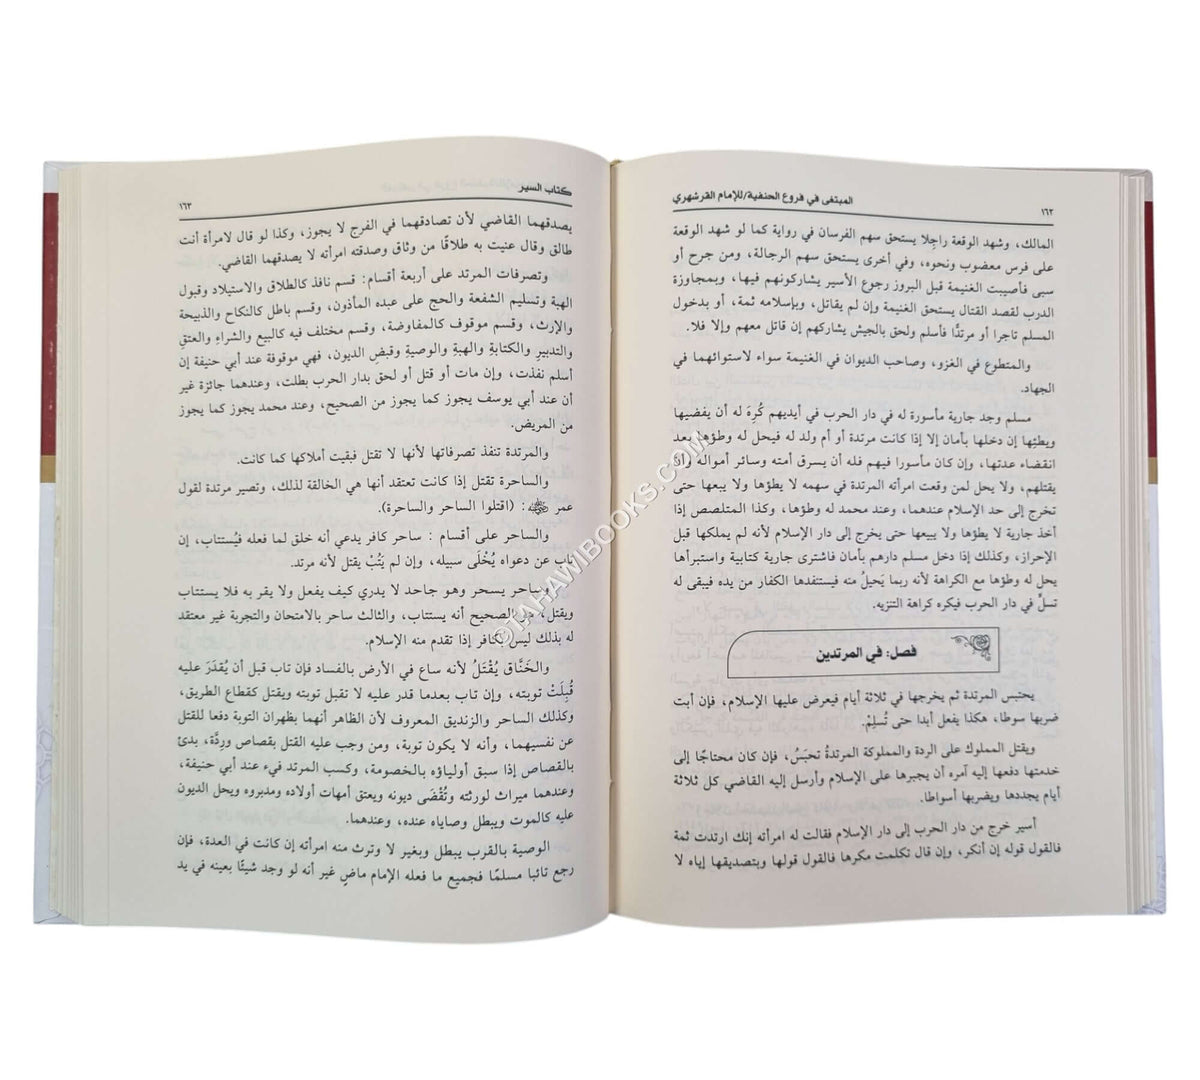 المبتغى في فروع الحنفية/للإمام القرشهري
١٦٢
المالك، وشهد الوقعة راجلا يستحق سهم الفرسان في رواية كما لو شهد الوقعة
على فرس مغصوب ونحوه، وفي أخرى يستحق سهم الرجالة، ومن جرح أو
سبى فأصيبت الغنيمة قبل البروز رجوع الأسير يشاركونهم فيها، وبمجاوزة
الدرب لقصد القتال يستحق الغنيمة وإن لم يقاتل، وبإسلامه ثمة، أو بدخول
المسلم تاجرا أو مرتدًّا فأسلم ولحق بالجيش يشاركهم إن قاتل معهم وإلا فلا.
والمتطوع في الغزو، وصاحب الديوان في الغنيمة سواء لاستوائهما في
الجهاد.
مسلم وجد جارية مأسورة له في دار الحرب في أيديهم كُرِهَ له أن يغضبها
ويطئها إن دخلها بأمان إلا إذا كانت مرتدة أو أم ولد له فيحل له وطؤها بعد
انقضاء عدتها، وإن كان مأسورا فيهم فله أن يسرق أمته وسائر أمواله وأن
يقتلهم، ولا يحل لمن وقعت امرأته المرتدة في سهمه لا يطؤها ولا يبعها حتى
تخرج إلى حد الإسلام عندهما، وعند محمد له وطؤها، وكذا المتلصص إذا
أخذ جارية لا يطؤها ولا يبيعها حتى يخرج إلى دار الإسلام لأنه لم يملكها قبل
الإحراز، وكذلك إذا دخل مسلم دارهم بأمان فاشترى جارية كتابية واستبرأها
يحل له وطؤها مع الكراهة لأنه ربما يَحبلُ منه فيستنفدها الكفار من يده فيبقى له
نسلٌ في دار الحرب فيكره كراهة التنزيه.
فصل: في المرتدين
يحتبس المرتدة ثم يخرجها في ثلاثة أيام فيعرض عليها الإسلام، فإن أبت
ضربها سوطا، هكذا يفعل أبدا حتى تُسلِمْ.
ويقتل المملوك على الردة والمملوكة المرتدةُ تحبَسُ، فإن كان محتاجًا إلى
خدمتها دفعها إليه آمره أن يجبرها على الإسلام وأرسل إليه القاضي كل ثلاثة
أيام يجددها ويضربها أسواطا.
أسير خرج من دار الحرب إلى دار الإسلام فقالت له امرأته إنك ارتدت ثمة
فالقول قوله إن أنكر، وإن قال تكلمت مكرها فالقول قولها وبتصديقها إياه لا
كتاب السير
١٦٣
يصدقهما القاضي لأن تصادقهما في الفرج لا يجوز، وكذا لو قال لامرأة أنت
طالق وقال عنيت به طلاقًا من وثاق وصدقته امرأته لا يصدقهما القاضي.
وتصرفات المرتد على أربعة أقسام: قسم نافذ كالطلاق والاستيلاد وقبول
الهبة وتسليم الشفعة والحج على عبده المأذون، وقسم باطل كالنكاح والذبيحة
والإرث، وقسم موقوف كالمفاوضة، وقسم مختلف فيه كالبيع والشراء والعتقِ
والتدبيرِ والكتابةِ والهبةِ والوصيةِ وقبضِ الديون، فهي موقوفة عند أبي حنيفة إن
أسلم نفذت، وإن مات أو قتل أو لحق بدار الحرب بطلت، وعندهما جائزة غير
أن عند أبي يوسف يجوز كما يجوز من الصحيح، وعند محمد يجوز كما يجوز
من المريض.
والمرتدة تنفذ تصرفاتها لأنها لا تقتل فبقيت أملاكها كما كانت.
والساحرة تقتل إذا كانت تعتقد أنها هي الخالقة لذلك، وتصير مرتدة لقول
عمر ﷺ: (اقتلوا الساحر والساحرة).
والساحر على أقسام : ساحر كافر يدعي أنه خلق لما فعله فيُستتاب، إن
تاب عن دعواه يُخْلَى سبيله، وإن لم يَتُبْ يقتل لأنه مرتد.
وساحر يسحر وهو جاحد لا يدري كيف يفعل ولا يقر به فلا يستتاب
ويقتل، والصحيح أنه يستتاب، والثالث ساحر بالامتحان والتجربة غير معتقد
به بذلك ليس بكافر إذا تقدم منه الإسلام.
والخَنَّاق يُقْتَلُ لأنه ساع في الأرض بالفساد فإن تاب قبل أن يُقدَرَ عليه
قُبِلَتْ توبته، وإن تاب بعدما قدر عليه لا تقبل توبته ويقتل كقطاع الطريق،
وكذلك الساحر والزنديق المعروف لأن الظاهر أنهما يظهران التوبة دفعا للقتل
عن نفسيهما، وأنه لا يكون توبة، ومن وجب عليه القتل بقصاص وردَّة، بدئ
بالقصاص إذا سبق أولياؤه بالخصومة، وكسب المرتد فيء عند أبي حنيفة،
وعندهما ميراث لورثته وتُقْضَى ديونه ويعتق أمهات أولاده ومدبروه ويحل الديون
عليه كالموت ويبطل وصاياه عنده، وعندهما.
الوصية بالقرب يبطل وبغير لا وترث منه امرأته إن كانت في العدة، فإن
رجع تائبا مسلمًا فجميع ما فعله الإمام ماضٍ غير أنه لو وجد شيئًا بعينه في يد
@TAHAWIBOOKS.COM